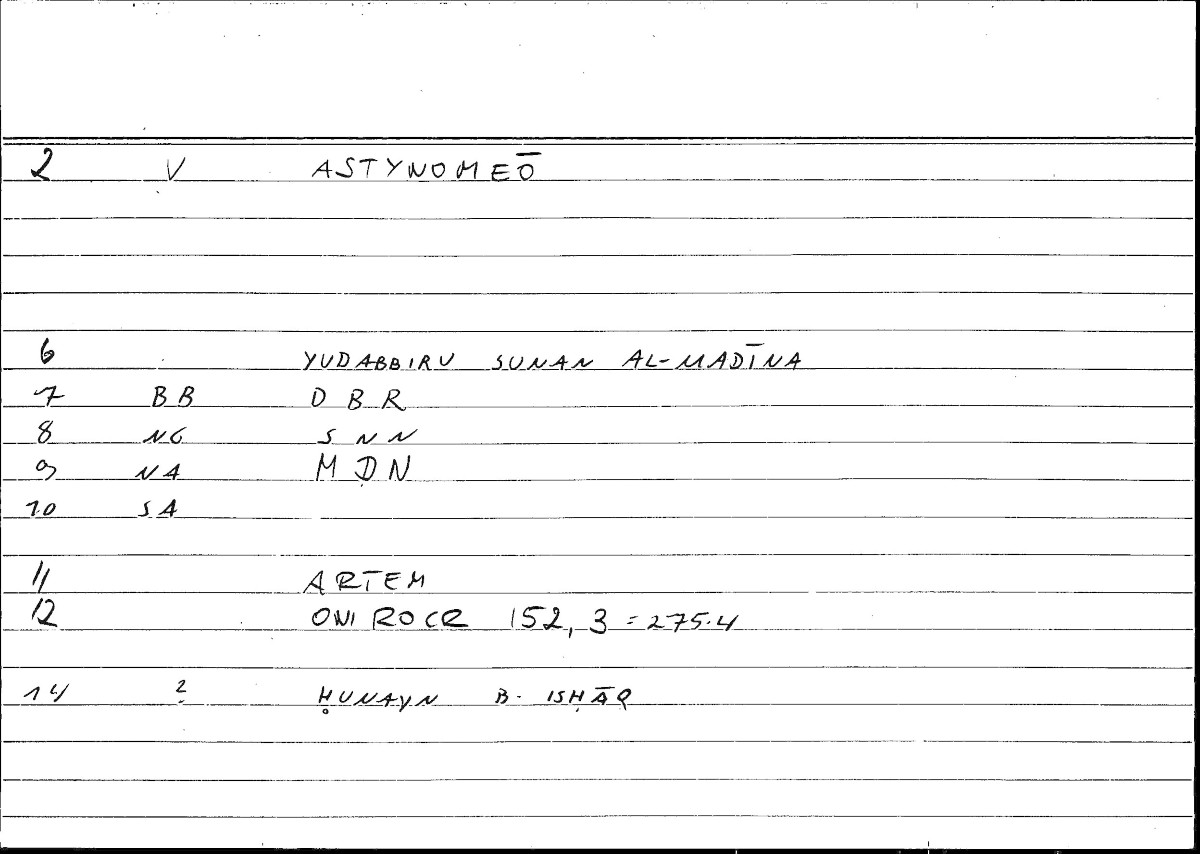 2 V ASTYNOMEŌ
6 YUDABBIRU SUNAN AL-MADĪNA
7 BB DBR
8 NG SNN
9 NA MDN
10 SA
11 ARTEM
12 ONIROCR 152,3 = 275.4
14 ? ḤUNAYN B. ISḤĀQ